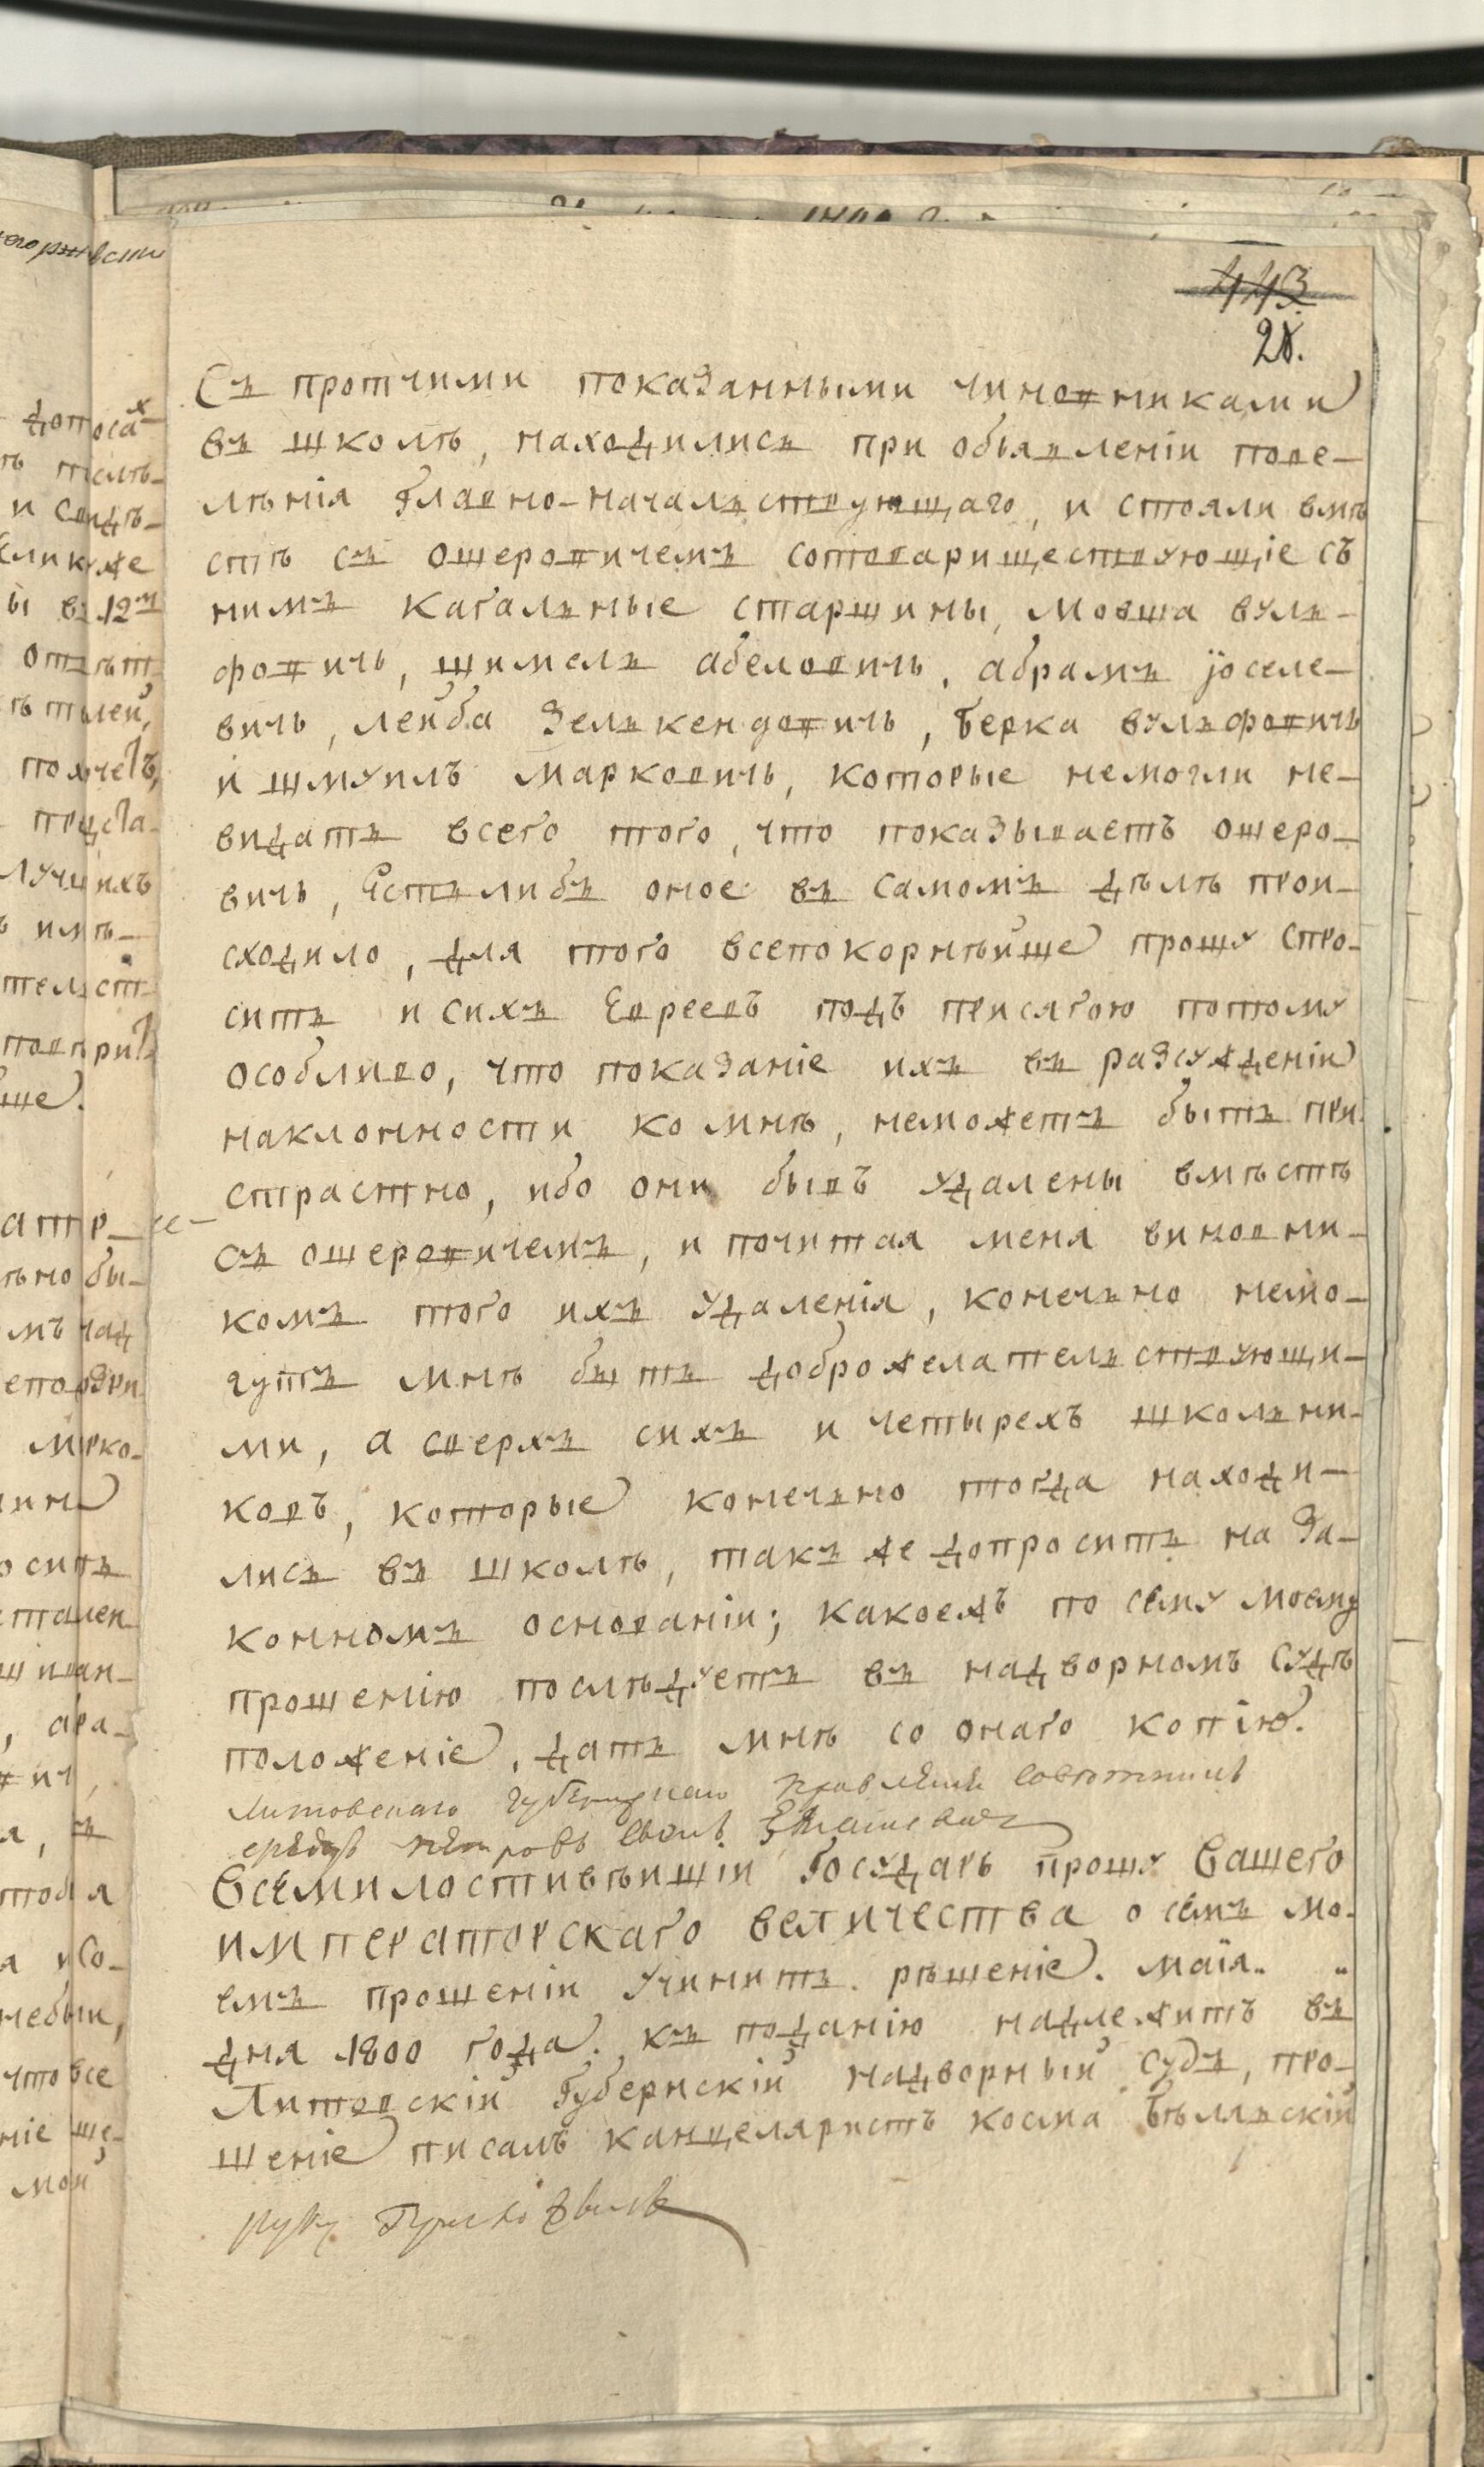 443
28.
Съ протчими показанными чиновниками
въ школѣ, находились при объявленіи пове-
лѣнія Главно-начальствующаго, и стояли вмѣ
стѣ съ ошеровичемъ сотовариществующіе съ
нимъ кагальные старшины, мовша вуль-
фовичь, шимель абеловичь, абрамъ іоселе-
вичь, лейба Зелькендовичь, берка вульфовичь
и шмуилъ марковичь, которые немогли не-
видать всего того, что показываетъ ошеро-
вичь, Естьлибъ оное въ самомъ дѣлѣ прои-
сходило, для того всепокорнѣйше прошу спро-
сить и сихъ Евреевъ подъ присягою потому
особливо, что показаніе ихъ въ разсужденіи
наклонности ко мнѣ, неможетъ быть при
страстно, ибо они бывъ удалены вмѣстѣ
съ ошеровичемъ, и почитая меня виновни-
комъ того ихъ удаленія, конечьно немо-
гутъ мнѣ быть доброжелательствующи-
ми, а сверхъ сихъ и четырехъ школьни-
ковъ, которые конечьно тогда находи-
лись въ школѣ, такъ же допросить на За-
конномъ основаніи; какоежъ по сему моему
прошенію послѣдуетъ въ надворномъ судѣ
положеніе, дать мнѣ со онаго копію.
Литовскаго губернскаго правленія советникъ
Всемилостивѣишіи Государь прошу Вашего
императорскаго величества о семъ мо-
емъ прошеніи учинить рѣшеніе. маія „ „
дня 1800 года. къ поданію надлежитъ въ
Литовскій Губернскій надворный судъ, про-
шеніе писалъ канцеляристъ косма Бѣлявскій
руку